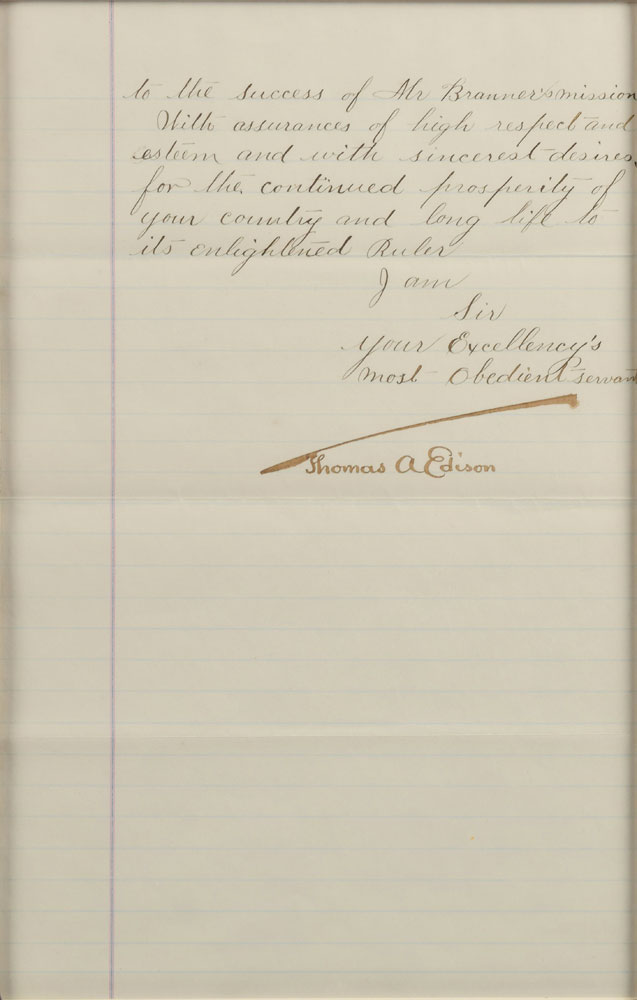 to the success of Mr Branner's mission
With assurances of high respect and
esteem and with sincerest desires,
for the continued prosperity of
your country and long life to
its enlightened Ruler
I am
Sir
Your Excellency's
most Obedient servant
Thomas A Edison